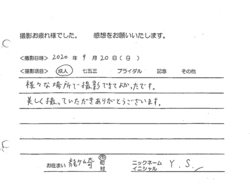 撮影お疲れ様でした。 感想をお願いいたします。
<撮影日時> 2020年 9月20日(日)
<撮影項目> 成人 七五三 ブライダル 記念 その他
様々な場所で撮影できてよかったです。
美しく撮っていただきありがとうございます。
お住まい 龍ケ崎 市 町 村 ニックネーム イニシャル Y.S.